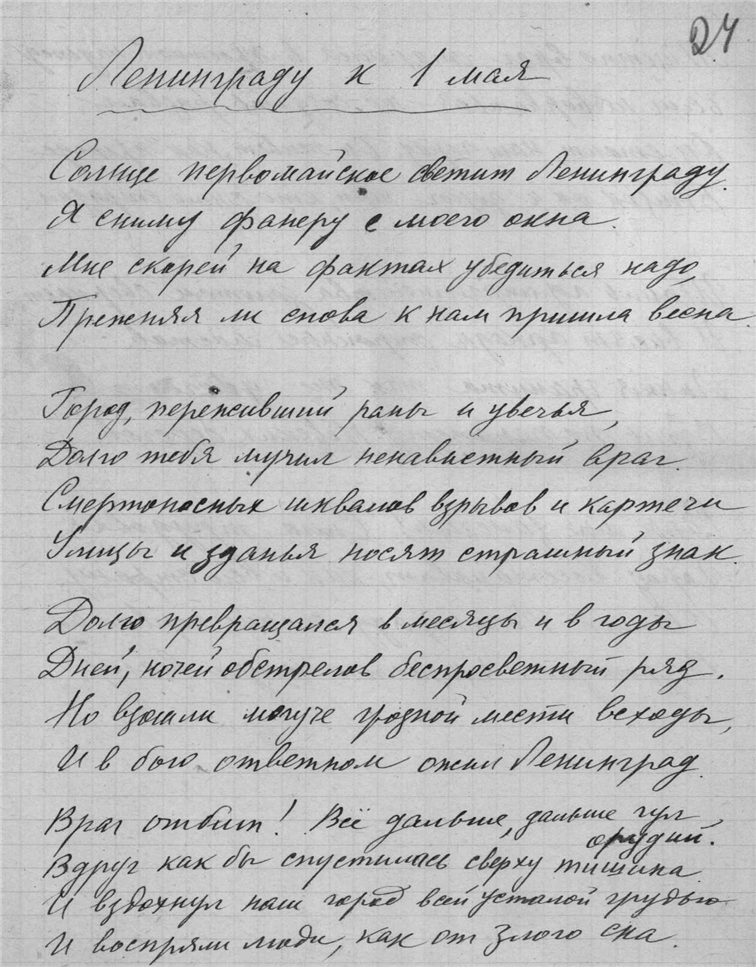 24
Ленинграду к 1 мая
Солнце первомайское светит Ленинграду.
Я сниму фанеру с моего окна.
Мне скорей на фактах убедиться надо,
Прежняя ли снова к нам пришла весна.
Город, переживший раны и увечья,
Долго тебя мучил ненавистный враг.
Смертоносных шквалов взрывов и картечи
Улицы и зданья носят страшный знак.
Долго превращался в месяцы и в годы
Дней, ночей обстрелов беспросветный ряд.
Но взошли могуче грозной мести всходы,
И в бою ответном ожил Ленинград.
Враг отбит! Всё дальше, дальше гул
орудий.
Вдруг как бы спустилась сверху тишина.
И вздохнул наш город всей усталой грудью
И воспряли люди, как от злого сна.